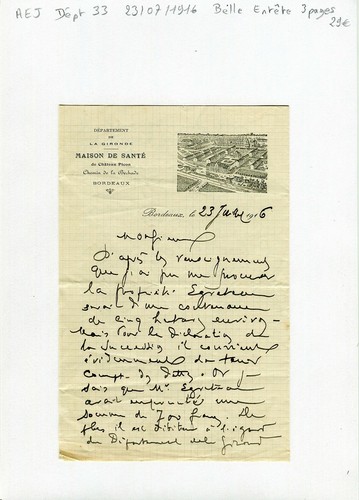 AEJ Dépt 33 23/07/1916 Belle Entête 3 pages
29€
DÉPARTEMENT
DE
LA GIRONDE
MAISON DE SANTÉ
de Château Picon
Chemin de la Béchade
BORDEAUX
Bordeaux, le 23 1916
Monsieur
D'après les renseignements
que j'ai pu me procurer
la propriété Egreteau
serait d'une contenance
de cinq hectares environ.
Mais pour la déclaration de
la succession il convient
évidemment de tenir
compte des dettes. Or je
sais que Mr. Egreteau
avait emprunté une
somme de francs. De
plus il est débiteur à l'égard
du Département de la Gironde